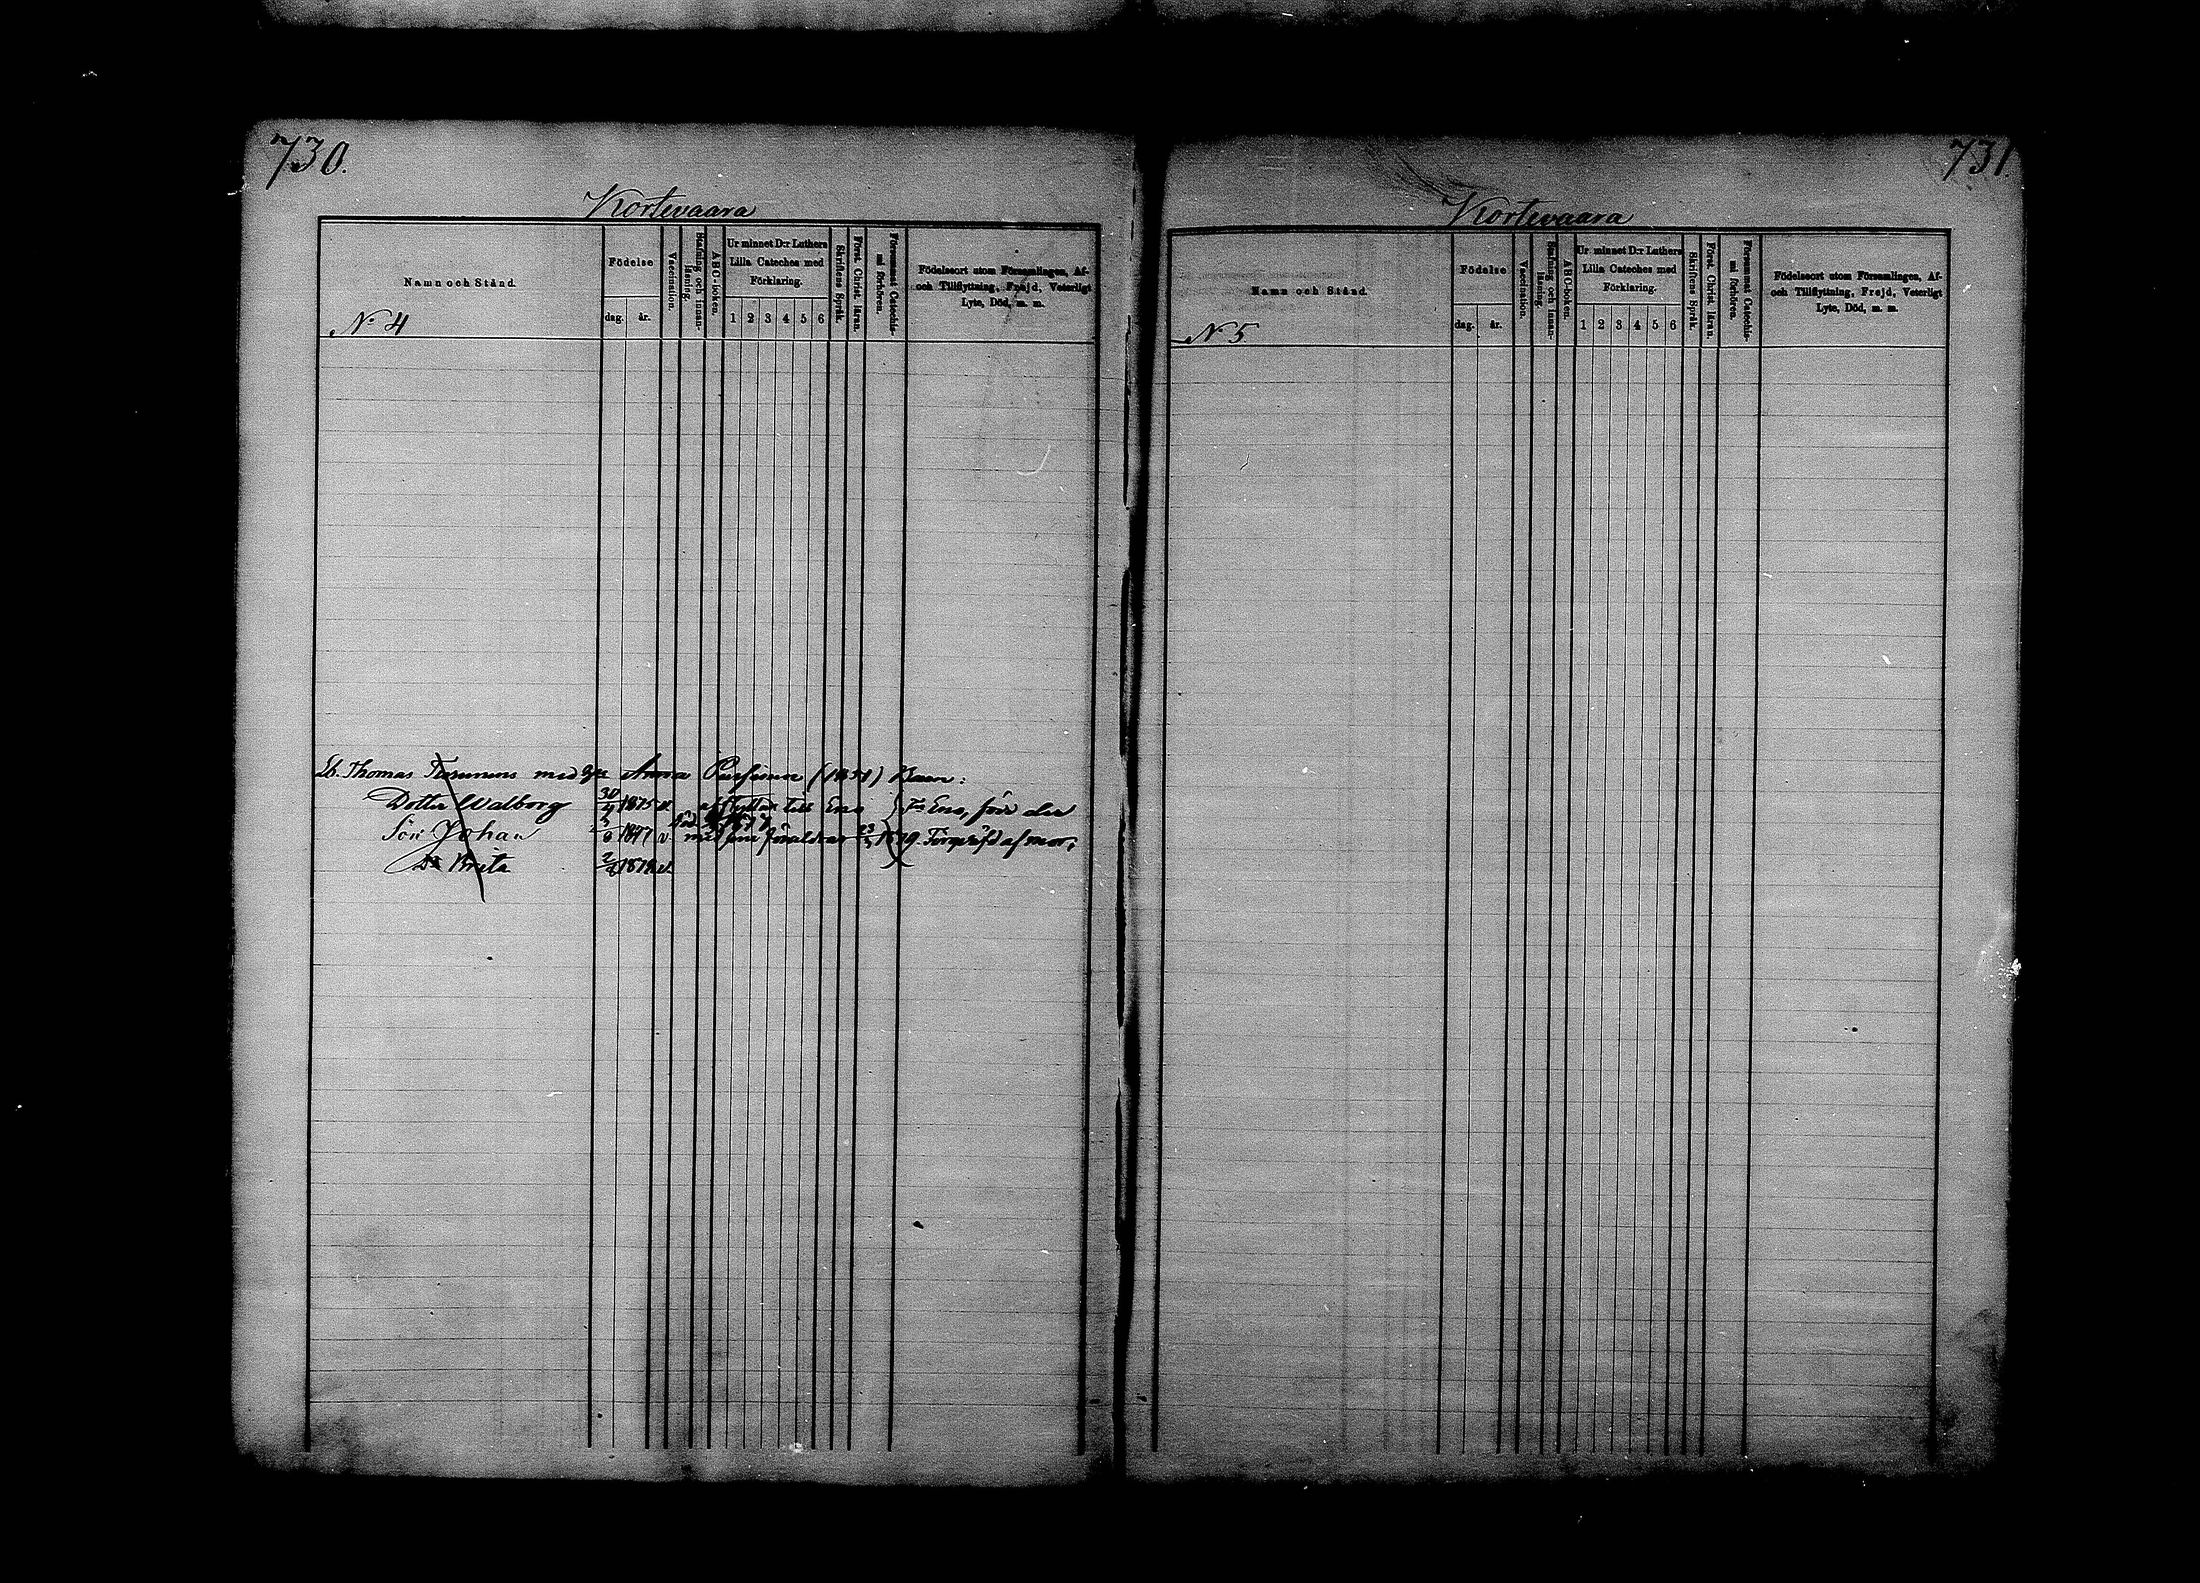 730.
Kortevaara
Namn och Stånd.
Födelse
dag. år.
Vaccination.
Stafning och innan-
läsning.
ABC-boken.
Ur minnet D:r Luthers
Lilla Cateches med
Förklaring.
1 2 3 4 5 6
Skriftens Språk.
Först. Christ. läran.
Försummat Catechis-
mi förhören.
Födelseort utom Församlingen, Af-
och Tillflyttning, Frejd, Veterligt
Lyte, Död, m. m.
No 4
Thomas med Anna (1851) Barn:
Dotter Walborg 30/4 1875 v afflyttat till Eno Eno, före
Son Johan 1877 v med sine föräldrar 1879. af mor:
Brita 1878 v.
731.
Kortevaara
Namn och Stånd.
Födelse
dag. år.
Vaccination.
Stafning och innan-
läsning.
ABC-boken.
Ur minnet D:r Luthers
Lilla Cateches med
Förklaring.
1 2 3 4 5 6
Skriftens Språk.
Först. Christ. läran.
Försummat Catechis-
mi förhören.
Födelseort utom Församlingen, Af-
och Tillflyttning, Frejd, Veterligt
Lyte, Död, m. m.
No 5.